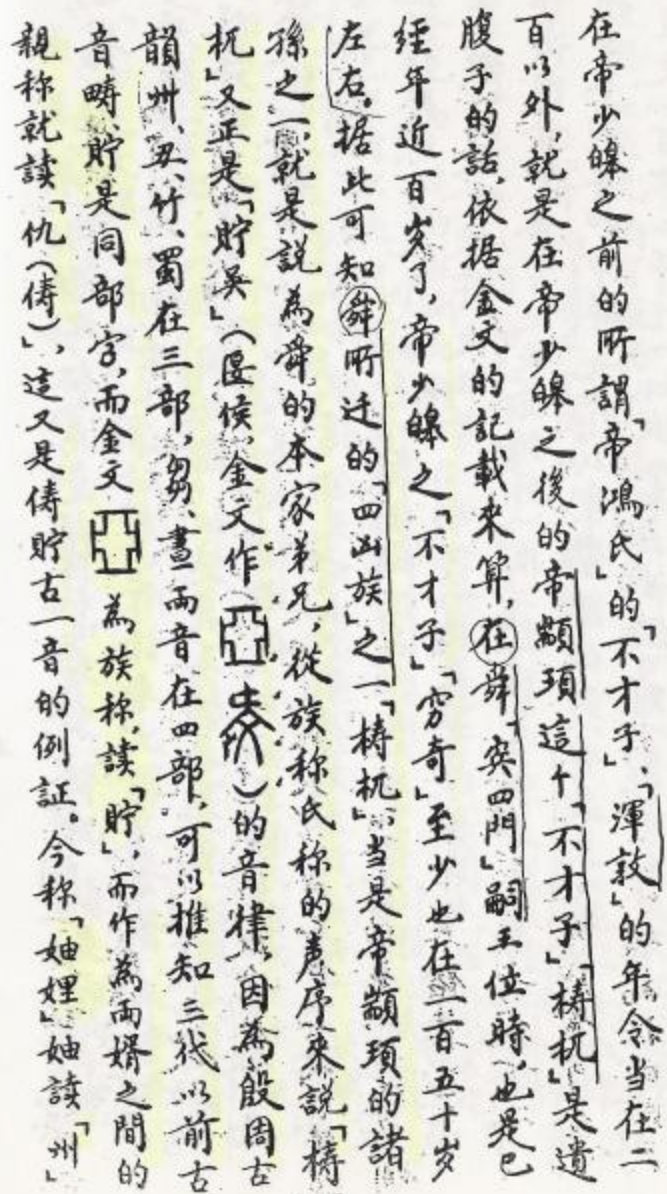 在帝少皞之前的所謂「帝鴻氏」的「不才子」、「渾敦」的年令当在二
百以外,就是在帝少皞之後的帝顓頊這个「不才子」「檮杌」是遺
腹子的話,依据金文的記載来算,在舜「賓四門」嗣王位時,也是已
經年近百岁了,帝少皞之「不才子」「穷奇」至少也在一百五十岁
左右。据此可知舜所迁的「四凶族」之一「梼杌」,当是帝顓頊的諸
孫之一,就是説為舜的本家弟兄,從族称氏称的声序来説「梼
杌」又正是「貯吳」(匽侯,金文作)的音律,因為殷周古
韻卅、丑、竹、蜀在三部,芻、晝両音在四部,可以推知三代以前古
音疇、貯是同部字,而金文為族称,读「貯」,而作為両婿之間的
親称就读「仇(俦)」,這又是俦貯古一音的例証。今称「妯娌」妯读「州」